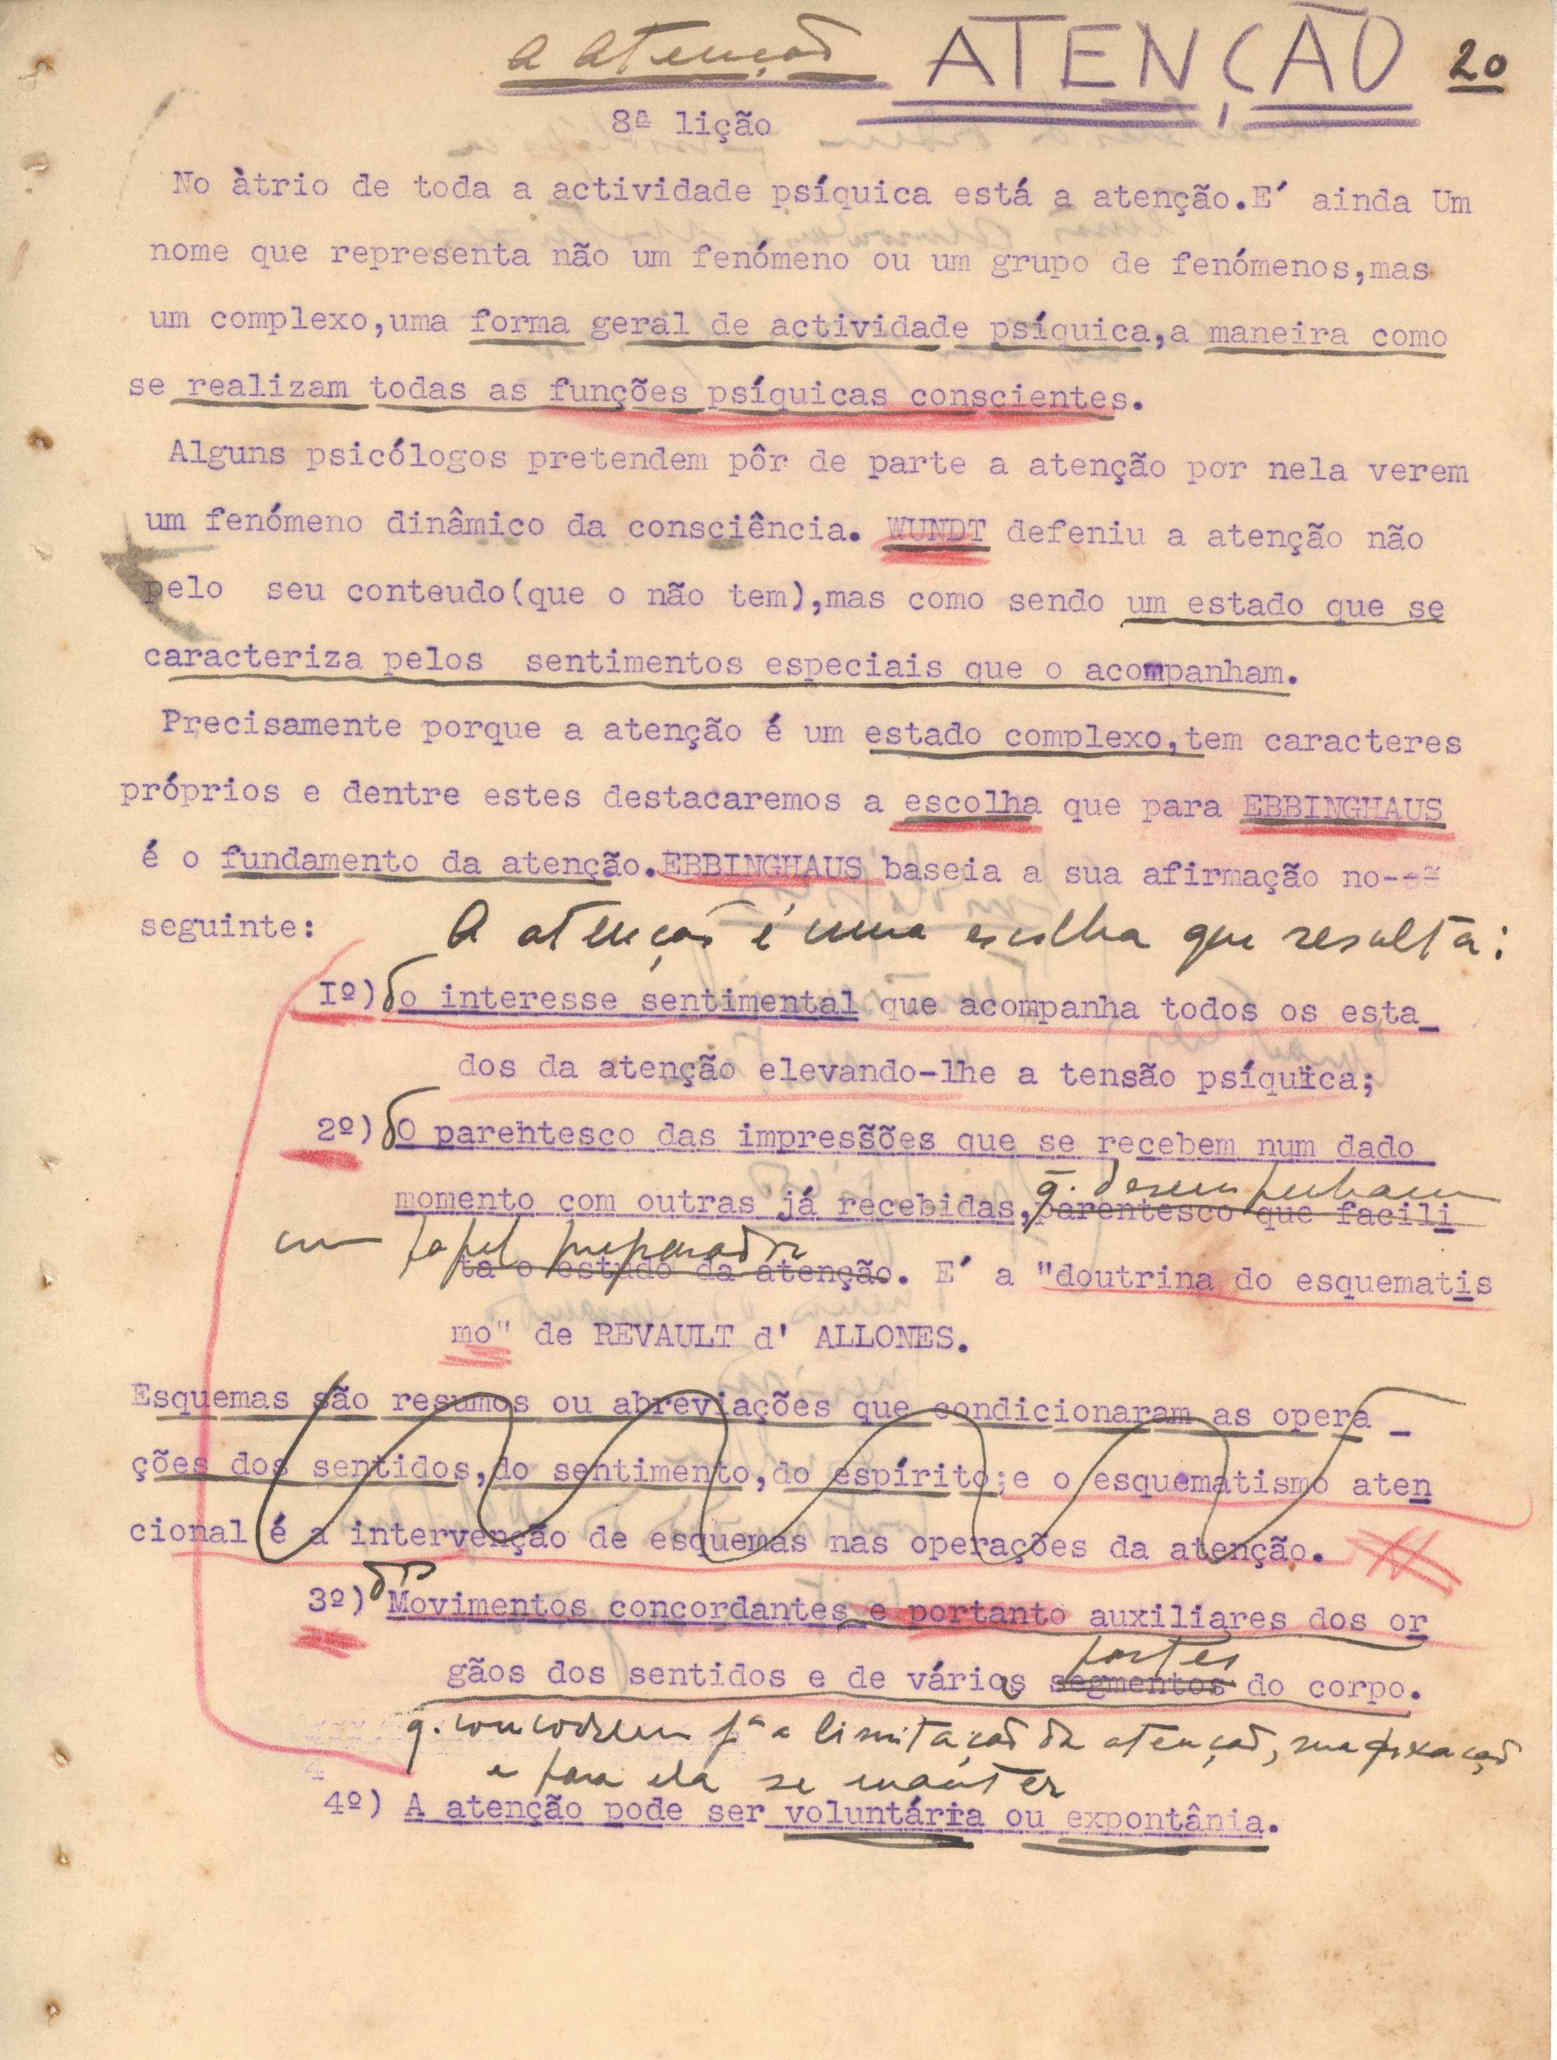 A atenção ATENÇÃO 20
8ª lição
No àtrio de toda a actividade psíquica está a atenção.E´ ainda Um
nome que representa não um fenómeno ou um grupo de fenómenos,mas
um complexo,uma forma geral de actividade psíquica,a maneira como
se realizam todas as funções psíquicas conscientes.
Alguns psicólogos pretendem pôr de parte a atenção por nela verem
um fenómeno dinâmico da consciência. WUNDT defeniu a atenção não
pelo seu conteudo(que o não tem),mas como sendo um estado que se
caracteriza pelos sentimentos especiais que o acompanham.
Precisamente porque a atenção é um estado complexo,tem caracteres
próprios e dentre estes destacaremos a escolha que para EBBINGHAUS
é o fundamento da atenção.EBBINGHAUS baseia a sua afirmação no--
seguinte: A atenção é uma escolha que resulta:
Iº) do interesse sentimental que acompanha todos os esta_
dos da atenção elevando-lhe a tensão psíquica;
2º) dO parentesco das impressões que se recebem num dado
q. desempenham
momento com outras já recebidas,parentesco que facili
um papel preparador
ta o estudo da atenção. E´ a "doutrina do esquematis
mo" de REVAULT d' ALLONES.
Esquemas são resumos ou abreviações que condicionaram as opera_
ções dos sentidos,do sentimento,do espírito;e o esquematismo aten
cional é a intervenção de esquemas nas operações da atenção.
3º) dos Movimentos concordantes e portanto auxiliares dos or
partes
gãos dos sentidos e de vários segmentos do corpo.
q. concorrem pª a limitação da atenção, sua fixação
e para ela se manter
4º) A atenção pode ser voluntária ou expontânia.